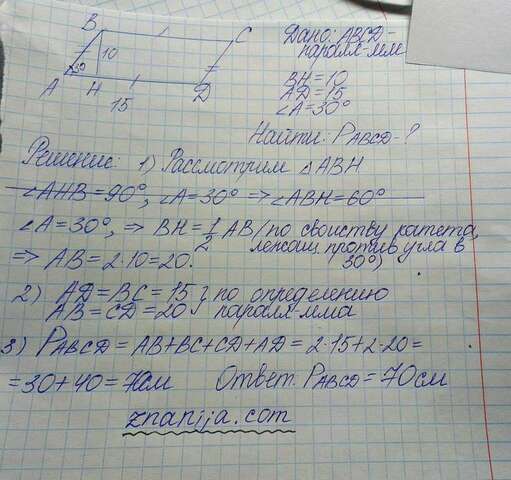 B
C
10
30
A
H
15
D
Дано: ABCD-
паралл-мм
BH=10
AD=15
∠A=30°
Найти: PABCD-?
Решение: 1) Рассмотрим △ABH
∠AHB=90°, ∠A=30° => ∠ABH=60°
∠A=30°, => BH=1/2 AB (по свойству катета,
лежащ. против угла в
=> AB=2·10=20. 30°)
2) AD=BC=15 } по определению
AB=CD=20 паралл-мма
3) PABCD=AB+BC+CD+AD=2·15+2·20=
=30+40=70см Ответ: PABCD=70см
znanija.com